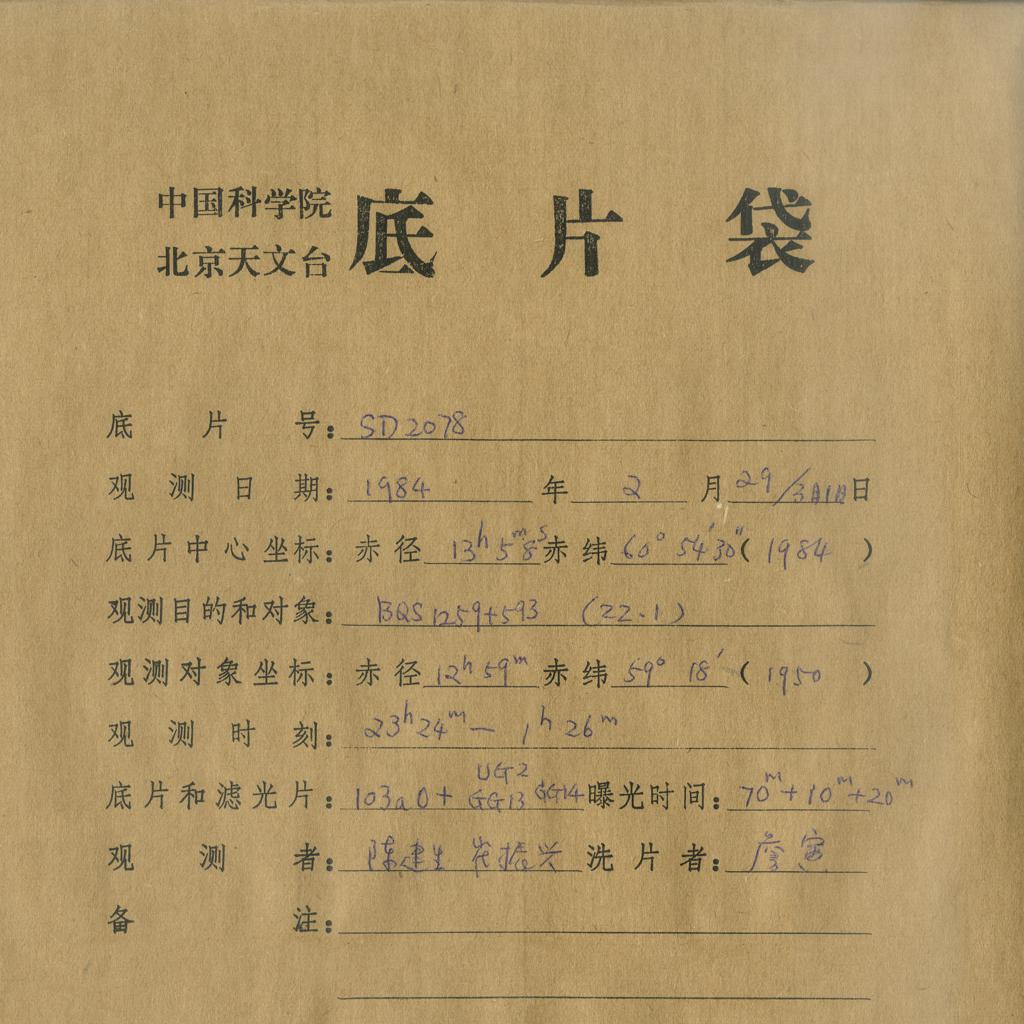 中国科学院
北京天文台 底片袋
底片号：SD2078
观测日期：1984年2月29/3月1日日
底片中心坐标：赤径 13h 5m 8s 赤纬 60° 54′ 30″ (1984)
观测目的和对象：BQS 1259+593 (22.1)
观测对象坐标：赤径 12h 59m 赤纬 59° 18′ (1950)
观测时刻：23h 24m — 1h 26m
底片和滤光片：103aO + UG2 GG13 GG14 曝光时间：70m+10m+20m
观测者：陈建生 崔振兴 洗片者：
备注：